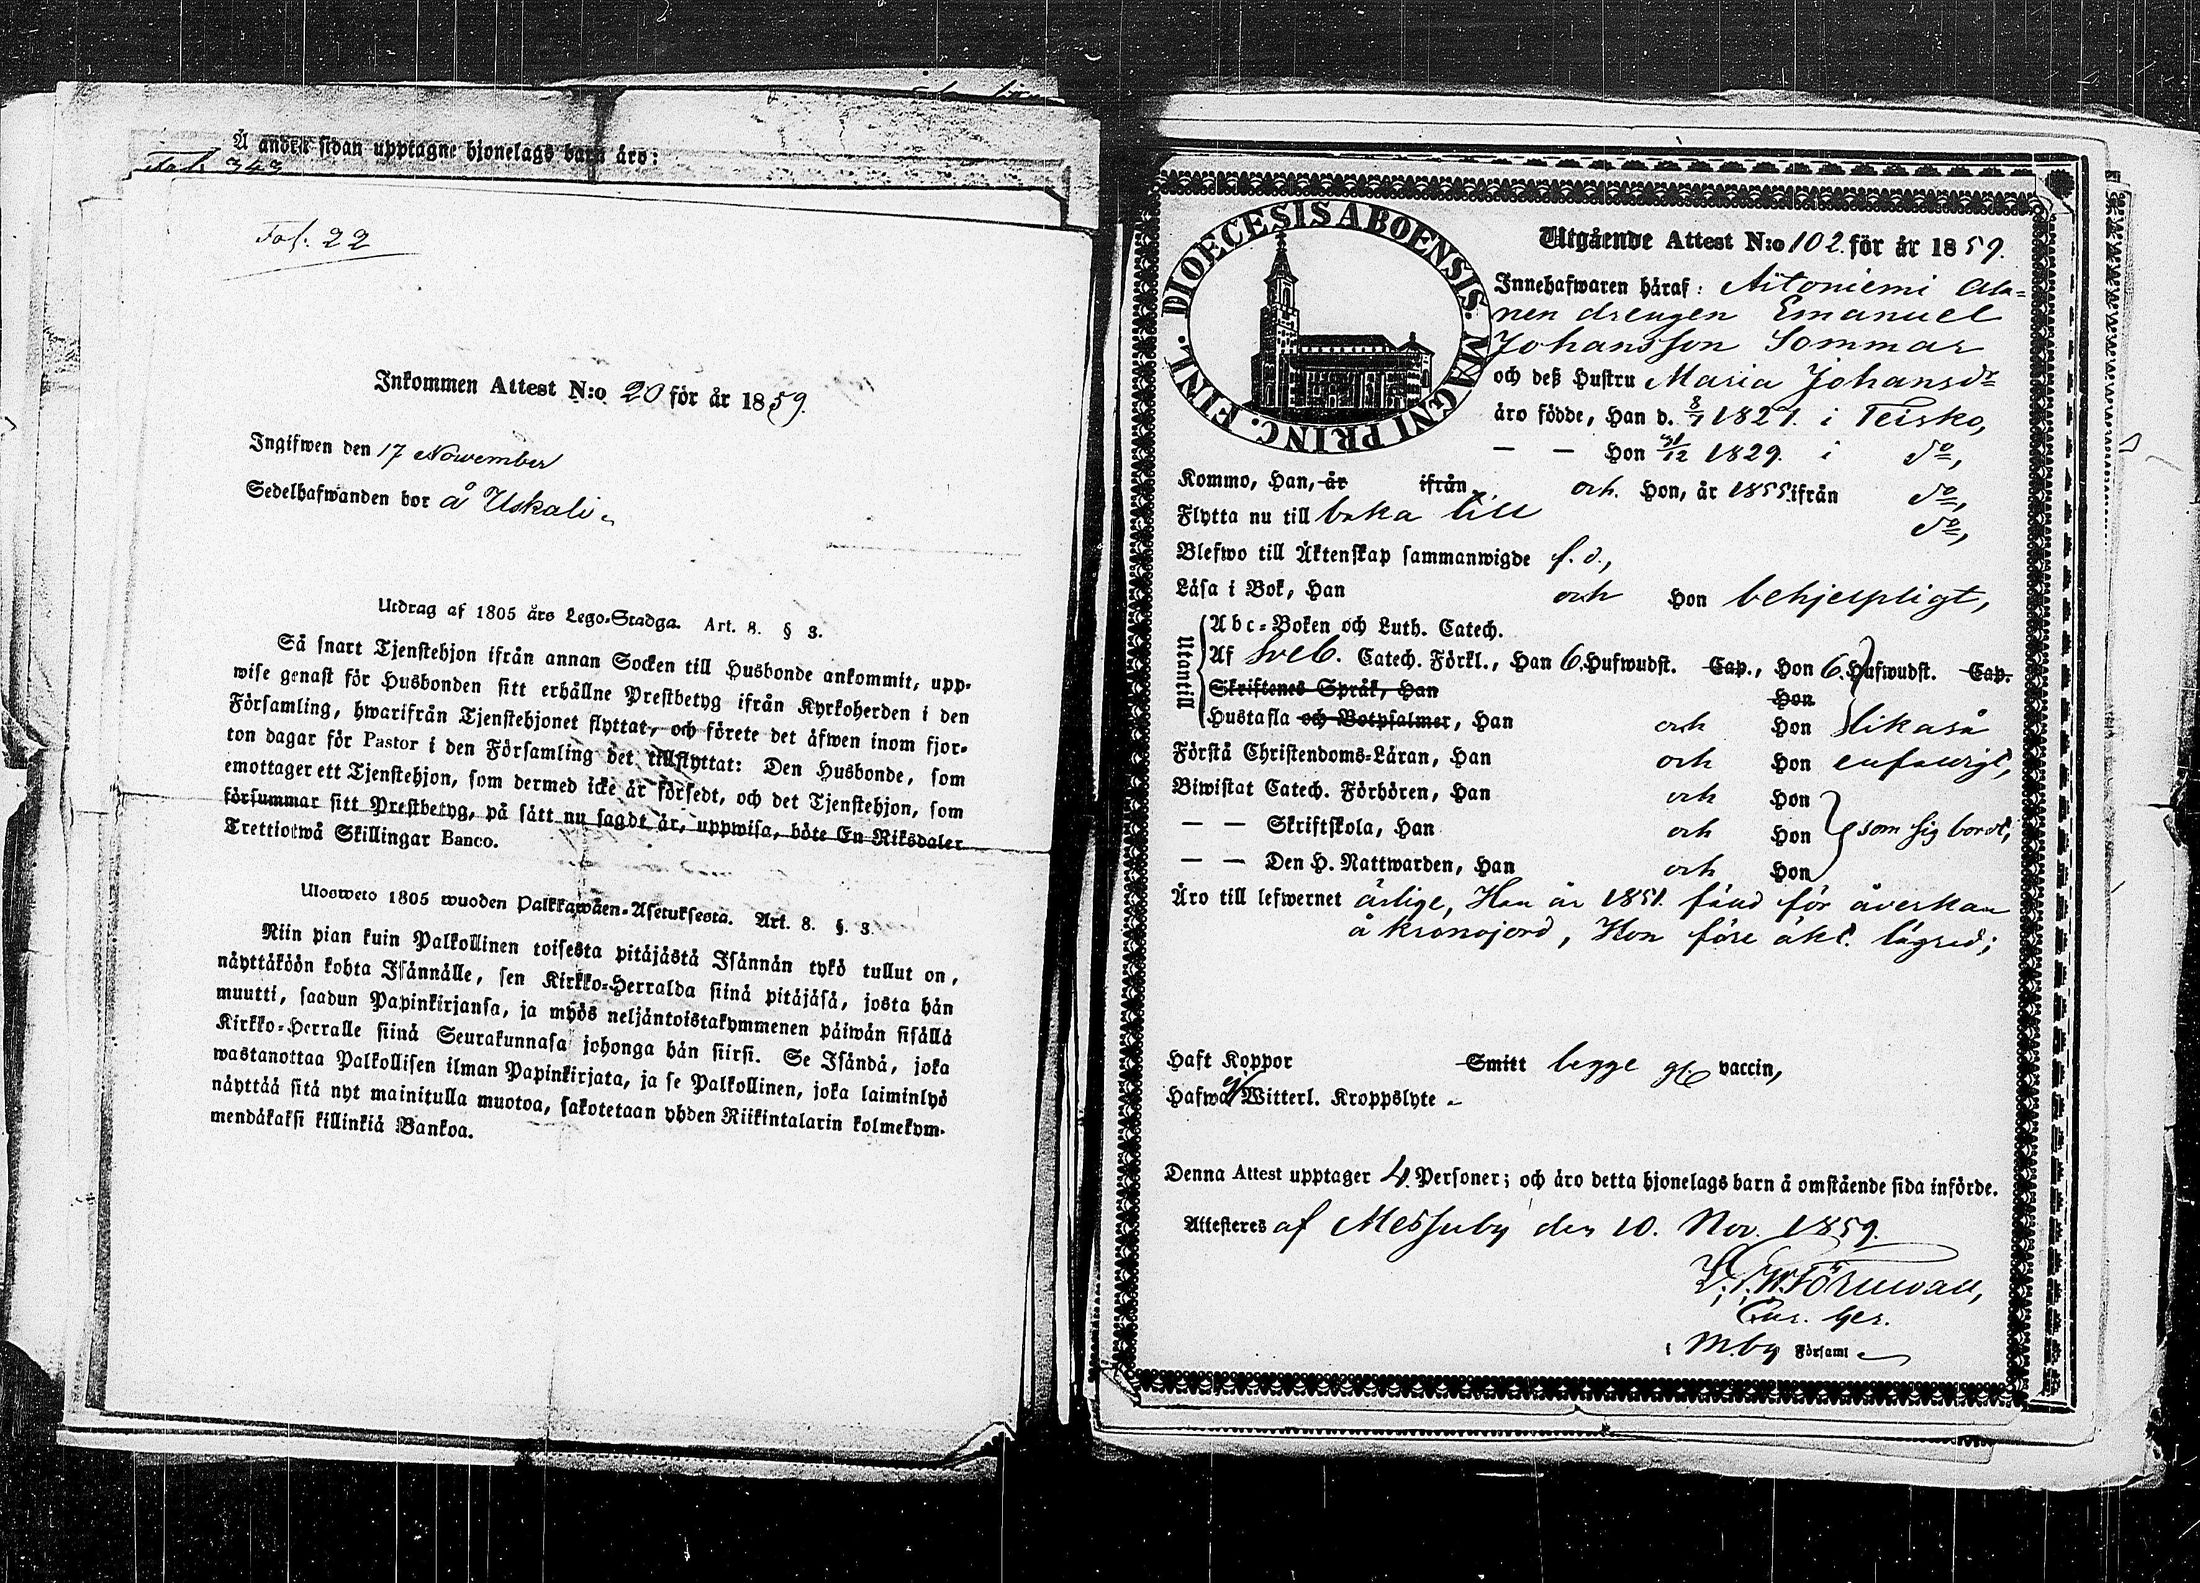 Å andra sidan upptagne hjonelags barn äro:
Fol. 343
Fol. 22
Inkommen Attest N:o 20 för år 1859.
Ingifwen den 17 November
Sedelhafwanden bor å Uskali
Utdrag af 1805 års Lego-Stadga. Art. 8. § 3.
Så snart Tjenstehjon ifrån annan Socken till Husbonde ankommit, upp-
wise genast för Husbonden sitt erhållne Prestbetyg ifrån Kyrkoherden i den
Församling, hwarifrån Tjenstehjonet flyttat, och förete det äfwen inom fjor-
ton dagar för Pastor i den Församling det tillflyttat: Den Husbonde, som
emottager ett Tjenstehjon, som dermed icke är försedt, och det Tjenstehjon, som
försummar sitt Prestbetyg, på sätt nu sagdt är, uppwisa, böte En Riksdaler
Trettiotwå Skillingar Banco.
Ulosweto 1805 wuoden Palkkawäen-Asetuksesta. Art. 8. §. 3.
Niin pian kuin Palkollinen toisesta pitäjästä Isännän tykö tullut on,
näyttäköön kohta Isännälle, sen Kirkko-Herralda siinä pitäjäsä, josta hän
muutti, saadun Papinkirjansa, ja myös neljäntoistakymmenen päiwän sisällä
Kirkko-Herralle siinä Seurakunnasa johonga hän siirsi. Se Isändä, joka
wastanottaa Palkollisen ilman Papinkirjata, ja se Palkollinen, joka laiminlyö
näyttää sitä nyt mainitulla muotoa, sakotetaan yhden Riikintalarin kolmekym-
mendäkaksi killinkiä Bankoa.
DIOECESIS ABOENSIS. MAGNI PRINC. FINL.
Utgående Attest N:o 102. för år 1859.
Innehafwaren häraf: Aitoniemi Ala-
nen drengen Emanuel
Johansson Sommar
och deß Hustru Maria Johansdr
äro födde, Han d. 8/7 1827. i Teisko,
— — Hon 31/12 1829. i do,
Kommo, Han, år ifrån och Hon, år 1855 ifrån do,
Flytta nu till baka till do,
Blefwo till Äktenskap sammanwigde f. d.,
Läsa i Bok, Han och Hon behjelpligt,
Utantill
Abc-Boken och Luth. Catech.
Af Sveb. Catech. Förkl., Han 6. Hufwudst. Cap., Hon 6. Hufwudst. Cap.
Skriftenes Språk, Han Hon
Hustafla och Botpsalmer, Han och Hon likaså
Förstå Christendoms-Läran, Han och Hon enfaldigt,
Biwistat Catech. Förhören, Han och Hon
— — Skriftskola, Han och Hon som sig bordt,
— — Den H. Nattwarden, Han och Hon
Äro till lefwernet ärlige, Han år 1851. fäld för åverkan
å kronojord, Hon före äkt. lägrad;
Haft Koppor Smitt begge gt vaccin,
Hafwa ej Witterl. Kroppslyte
Denna Attest upptager 4. Personer; och äro detta hjonelags barn å omstående sida införde.
Attesteras af Messuby den 10. Nov. 1859.
Törnwall,
i M.by Församl